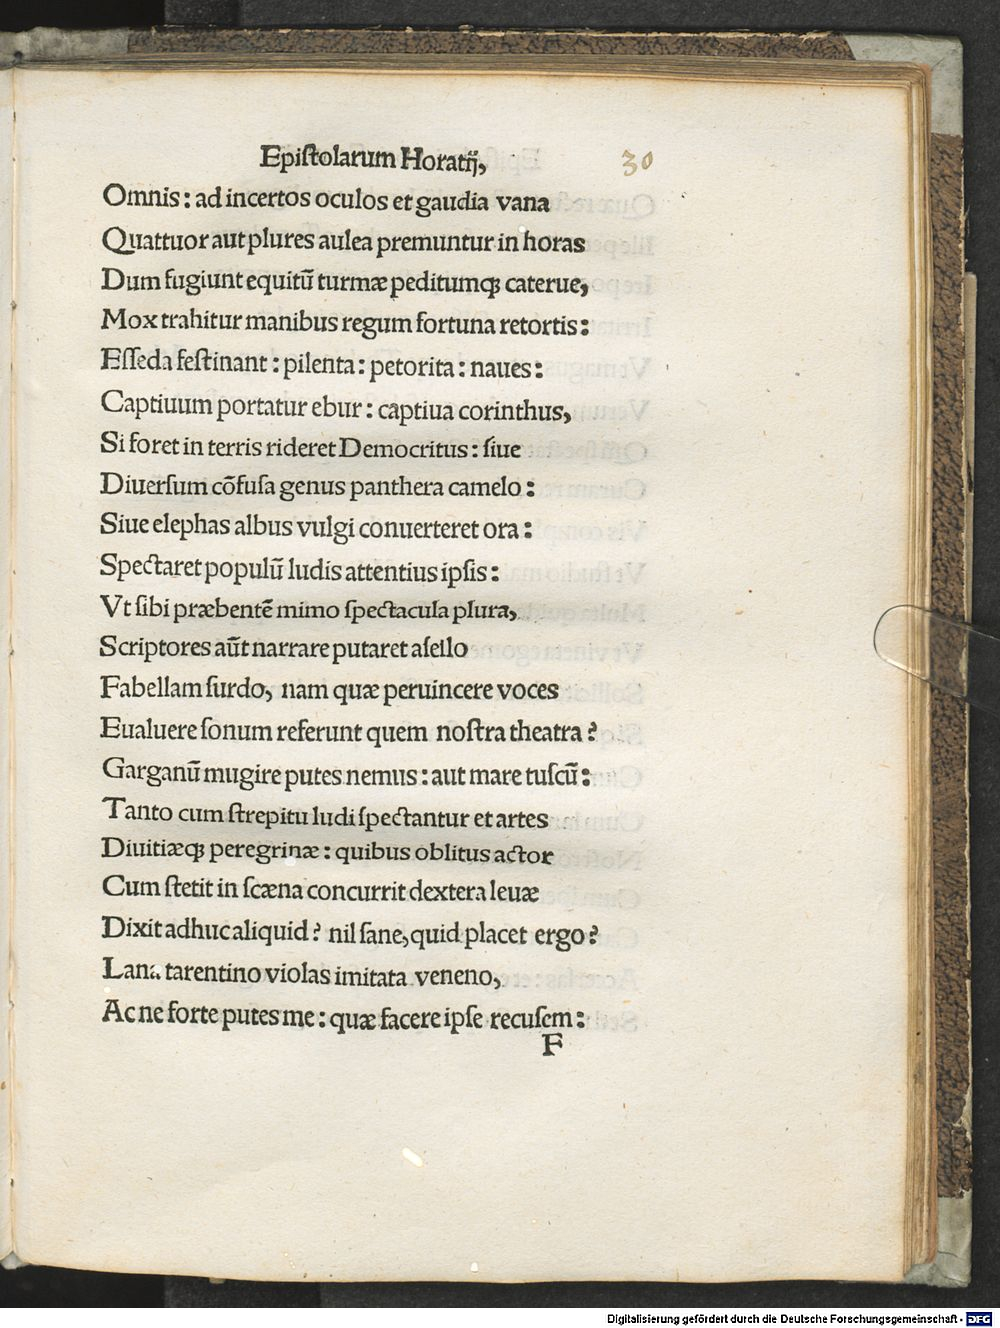 Epiſtolarum Horatij, 30
Omnis: ad incertos oculos et gaudia vana
Quattuor aut plures aulea premuntur in horas
Dum fugiunt equitū turmæ peditumqꝫ caterue,
Mox trahitur manibus regum fortuna retortis:
Eſſeda feſtinant: pilenta: petorita: naues:
Captiuum portatur ebur: captiua corinthus,
Si foret in terris rideret Democritus: ſiue
Diuerſum cōfuſa genus panthera camelo:
Siue elephas albus vulgi conuerteret ora:
Spectaret populū ludis attentius ipſis:
Vt ſibi præbentē mimo ſpectacula plura,
Scriptores aūt narrare putaret aſello
Fabellam ſurdo, nam quæ peruincere voces
Eualuere ſonum referunt quem noſtra theatra?
Garganū mugire putes nemus: aut mare tuſcū:
Tanto cum ſtrepitu ludi ſpectantur et artes
Diuitiæqꝫ peregrinæ: quibus oblitus actor
Cum ſtetit in ſcæna concurrit dextera leuæ
Dixit adhuc aliquid? nil ſane, quid placet ergo?
Lana tarentino violas imitata veneno,
Ac ne forte putes me: quæ facere ipſe recuſem:
F
Digitalisierung gefördert durch die Deutsche Forschungsgemeinschaft - DFG